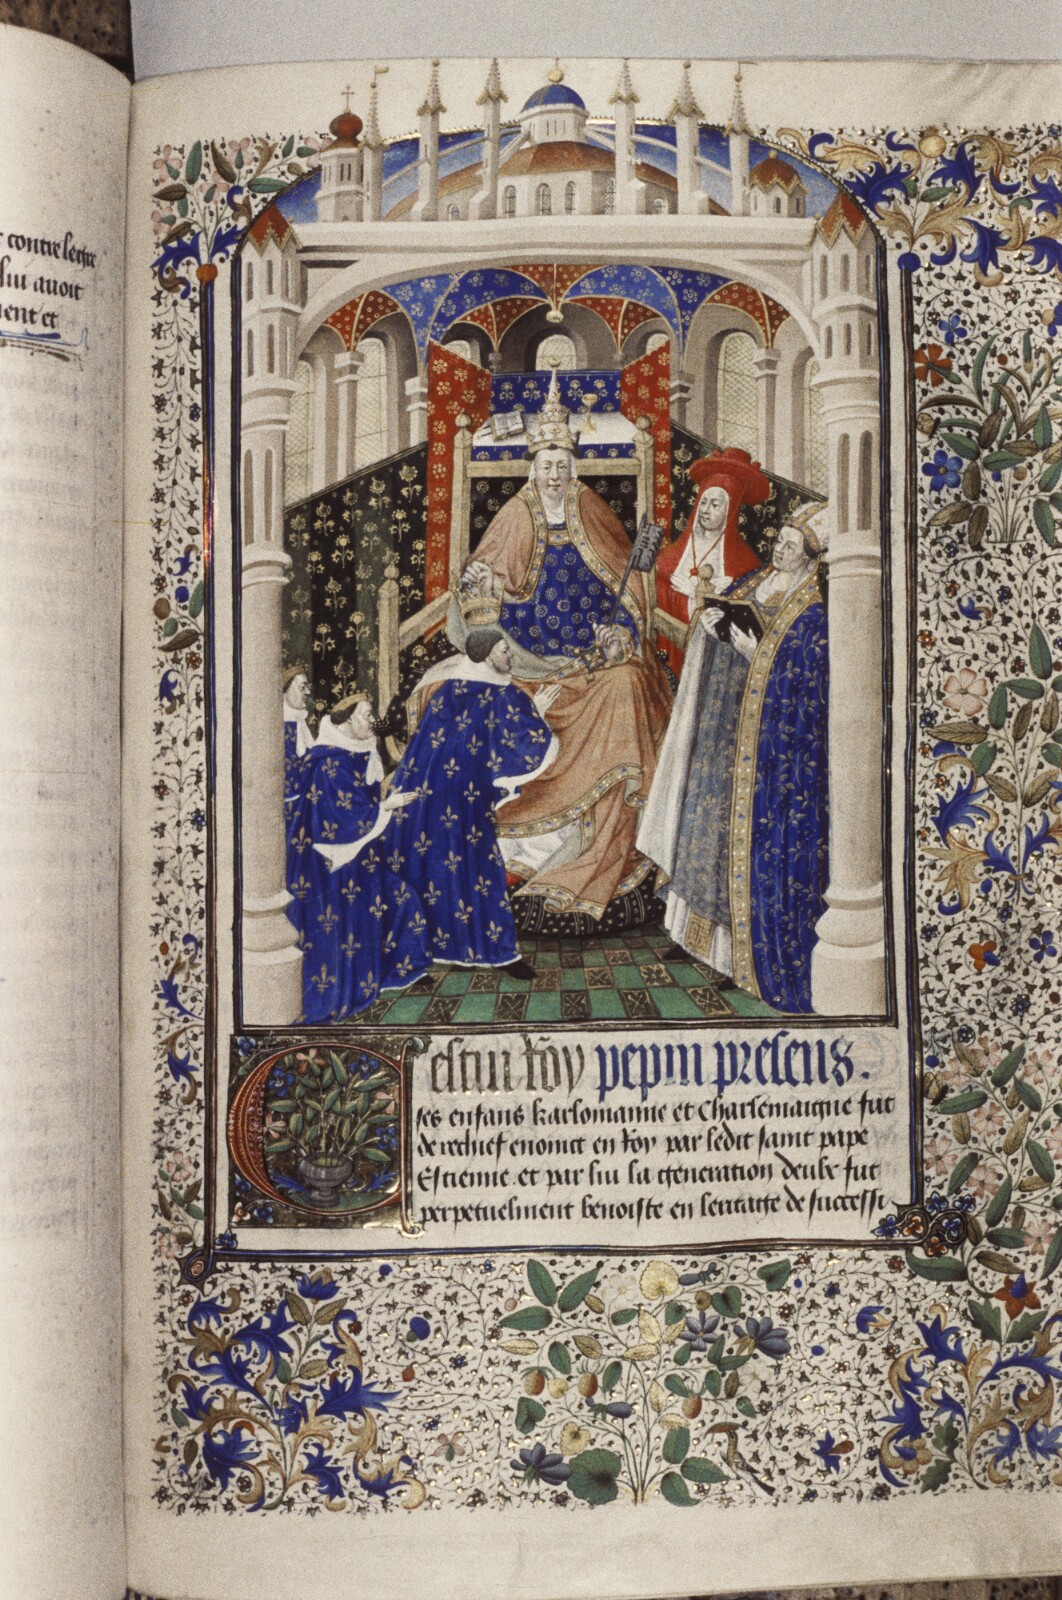 contre lectre
lui auoit
ment et
Cestui roy pepin presens.
ses enfans karlomanne et Charlemaigne fut
de rechief enoinct en roy par ledit saint pape
Estienne. et par lui la generation deulx fut
perpetuelment benoiste en leritage de successi